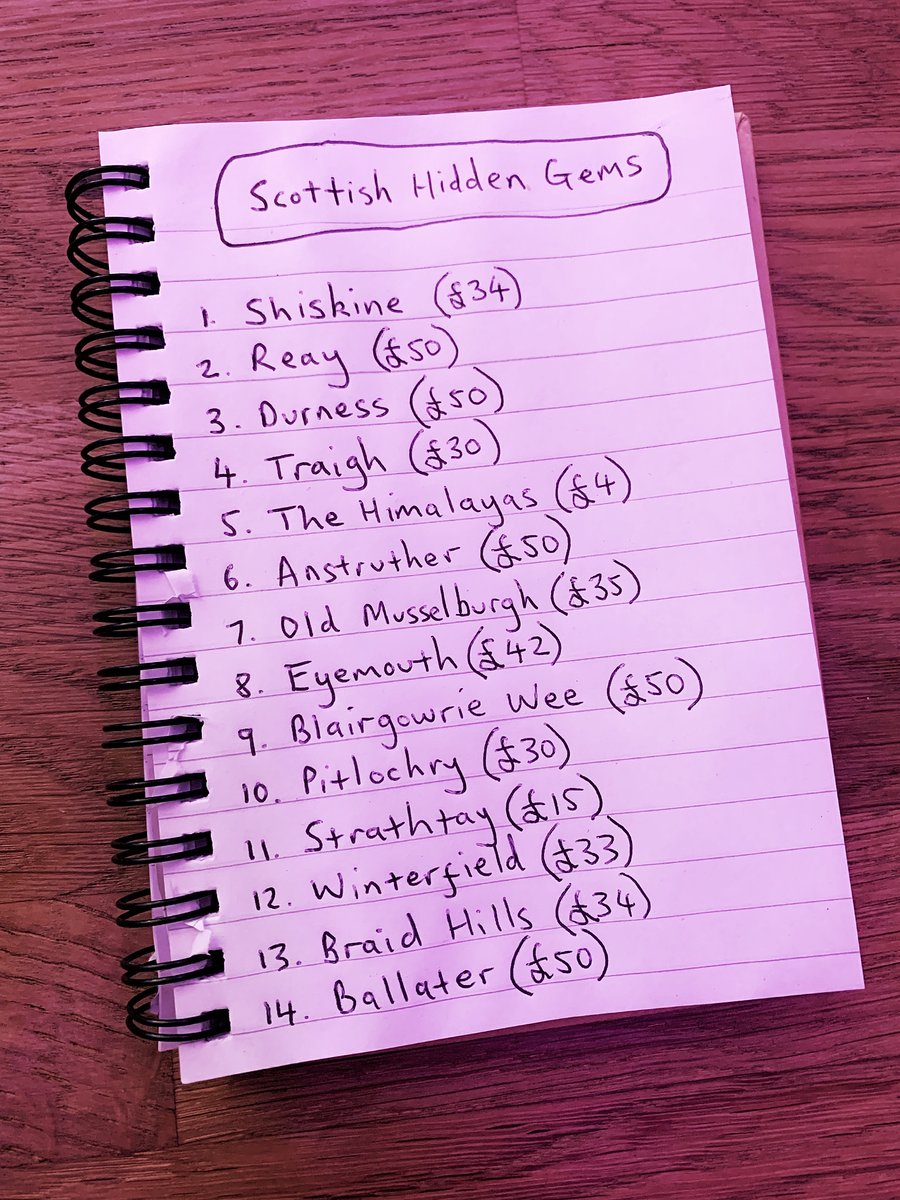 Scottish Hidden Gems
1. Shiskine (£34)
2. Reay (£50)
3. Durness (£50)
4. Traigh (£30)
5. The Himalayas (£4)
6. Anstruther (£50)
7. Old Musselburgh (£35)
8. Eyemouth (£42)
9. Blairgowrie Wee (£50)
10. Pitlochry (£30)
11. Strathtay (£15)
12. Winterfield (£33)
13. Braid Hills (£34)
14. Ballater (£50)